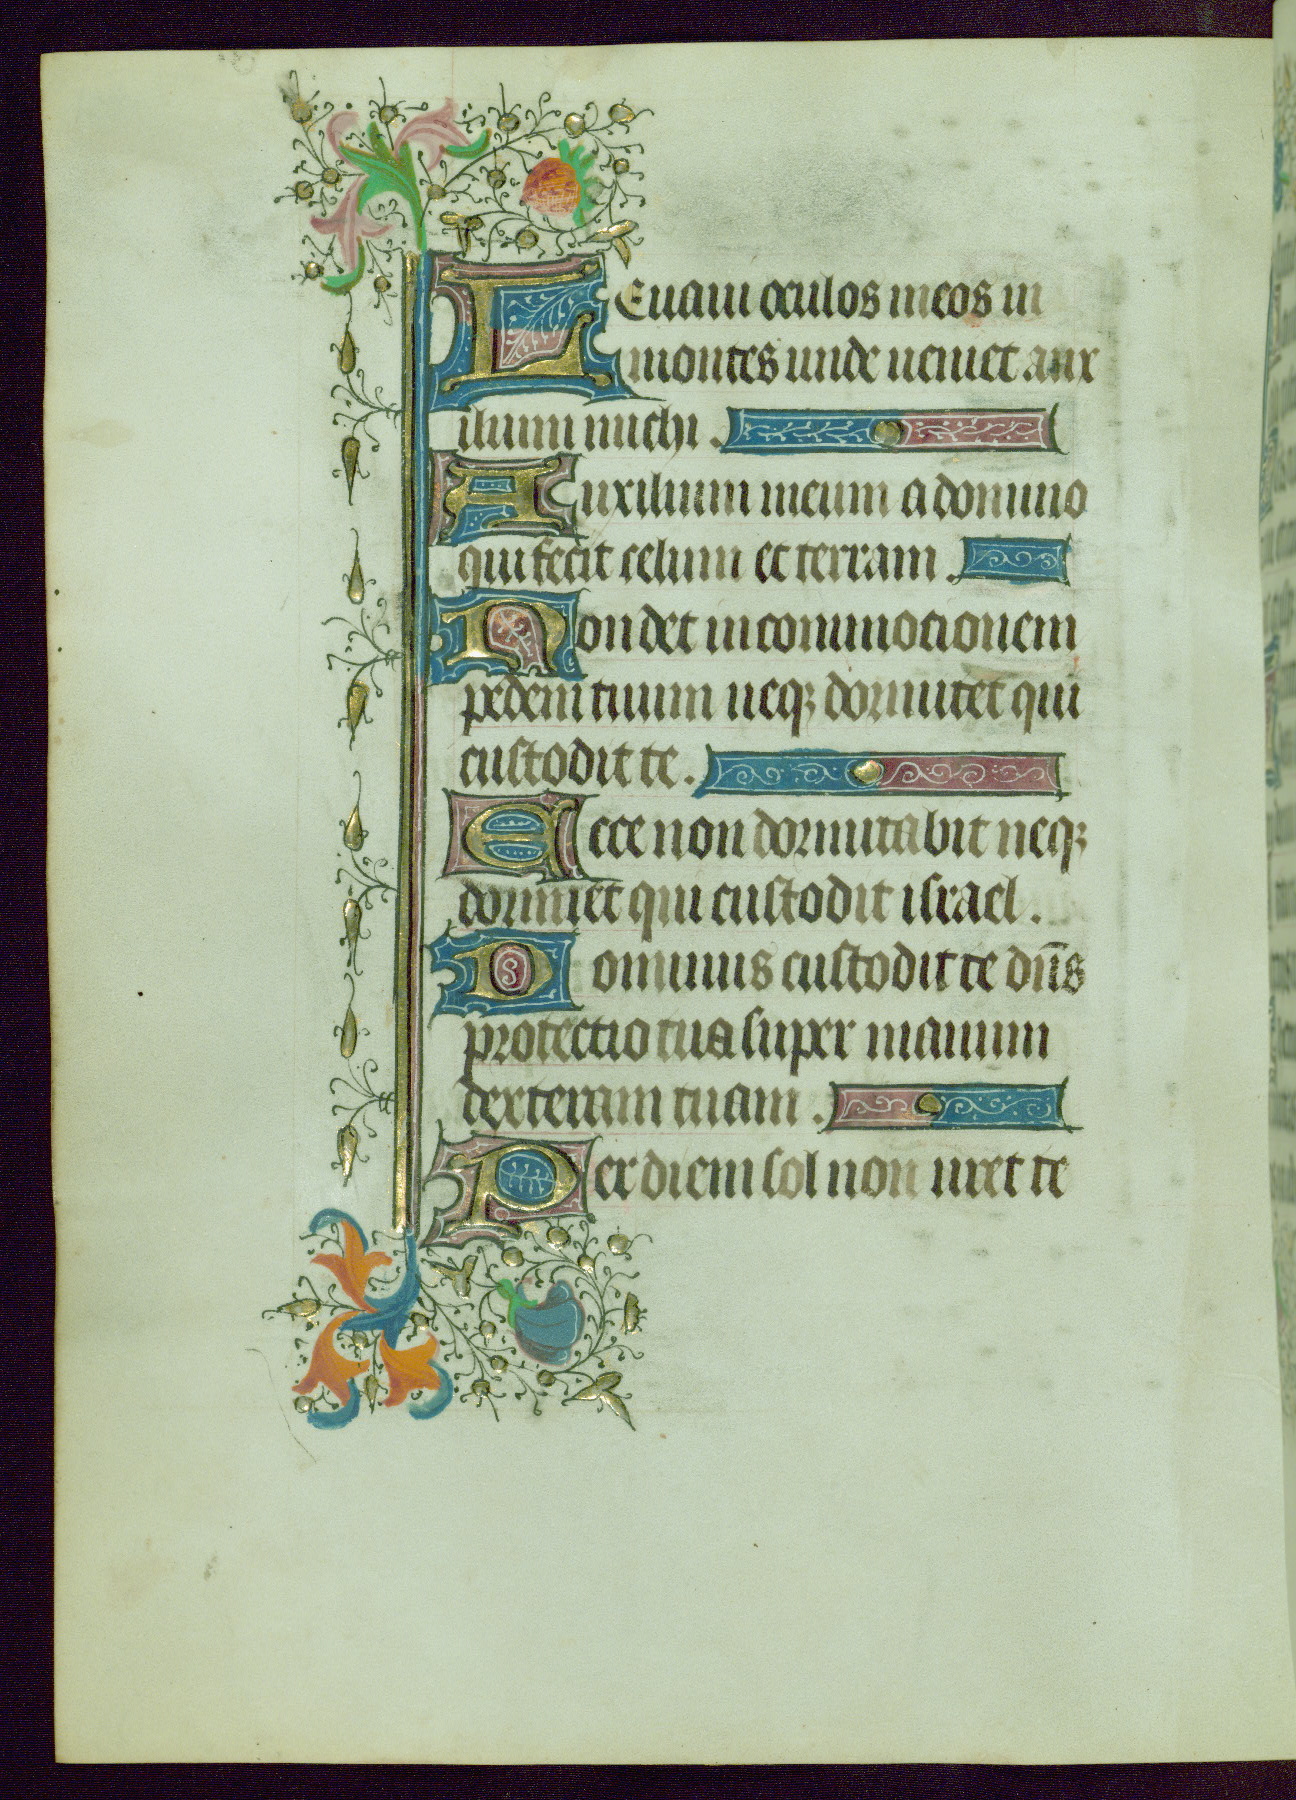 LEuam oculos meos in
montes unde ueniet aux
ilium michi .
Auxilium meum a domino
qui fecit celum et terram .
Non det in conmocionem
pedem tuum neqz dormitet qui
custodit te .
Ecce non dormitabit neqz
dormiet qui custodit israel .
Dominus custodit te dn̄s
protectio tua super manum
dexteram tuam .
Per diem sol non uret te